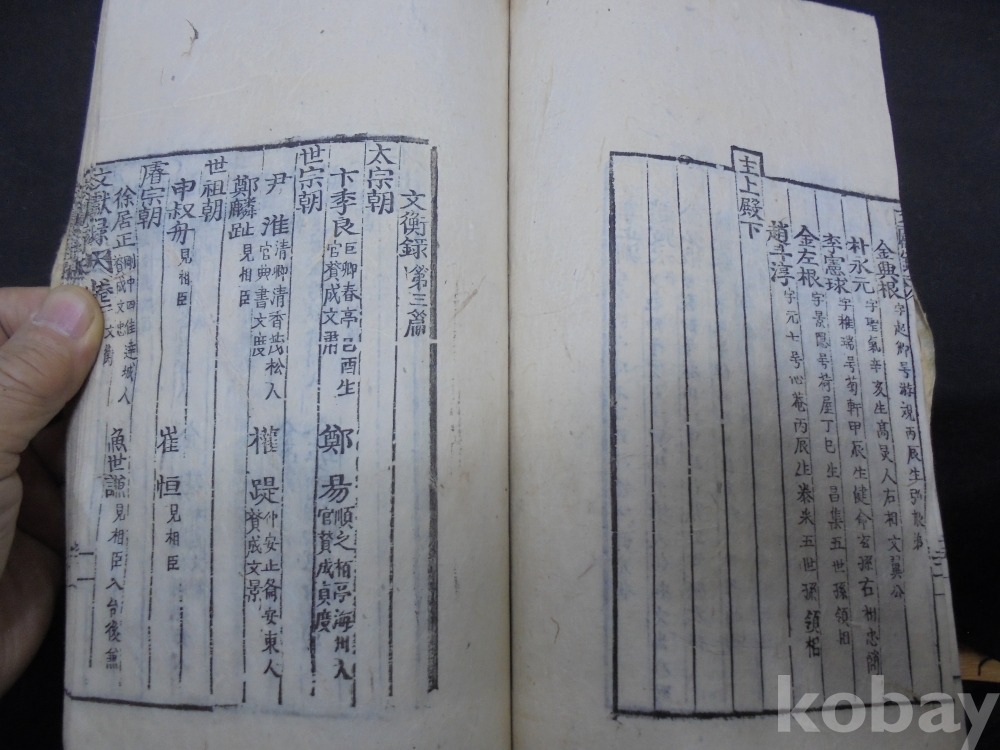 金興根 字起卿号游觀丙辰生弘根弟
朴永元 字聖氣辛亥生高灵人右相文翼公
李憲球 字稚瑞号菊軒甲辰生健命玄孫右相忠簡
金左根 字景隱号荷屋丁巳生昌集五世孫領相
趙斗淳 字元七号心菴丙辰生泰采五世孫領相
主上殿下
文衡錄 第三篇
太宗朝
卞季良 巨卿春亭己酉生官贊成文肅 鄭易 順之栢亭海州人官贊成貞度
世宗朝
尹淮 清卿清香茂松人官典書文度 權踶 仲安止齋安東人贊成文景
鄭麟趾 見相臣
世祖朝
申叔舟 見相臣 崔恒 見相臣
睿宗朝
徐居正 剛中四佳達城人贊成文忠 魚世謙 見相臣入台後兼
文獻錄
kobay